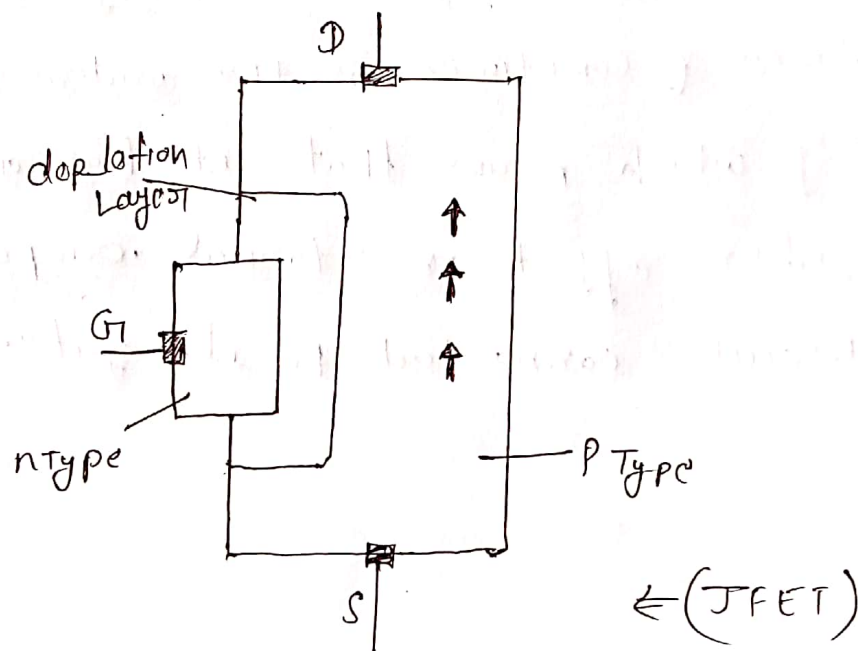 D
deplation
Layer
G
n Type
P Type
S
← (JFET)